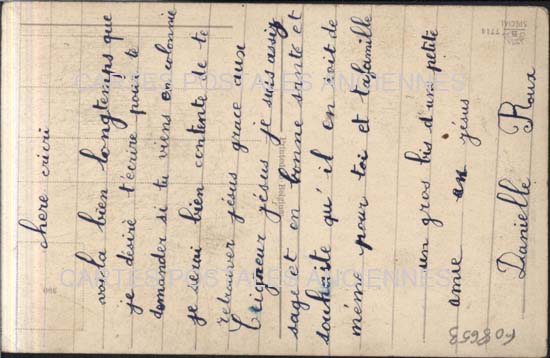 chere cricri
voila bien longtemps que
je désiré t'écrire pour te
demander si tu viens en colonnie
je serai bien contente de te
retrouver jésus grace aux
Seigneur jésus je suis assez
sage et en bonne santé et
souhaite qu'il en soit de
même pour toi et ta famille
un gros bis d'une petite
amie en jésus
Danielle Roux
CARTES POSTALES ANCIENNES
CARTES POSTALES ANCIENNES
608653